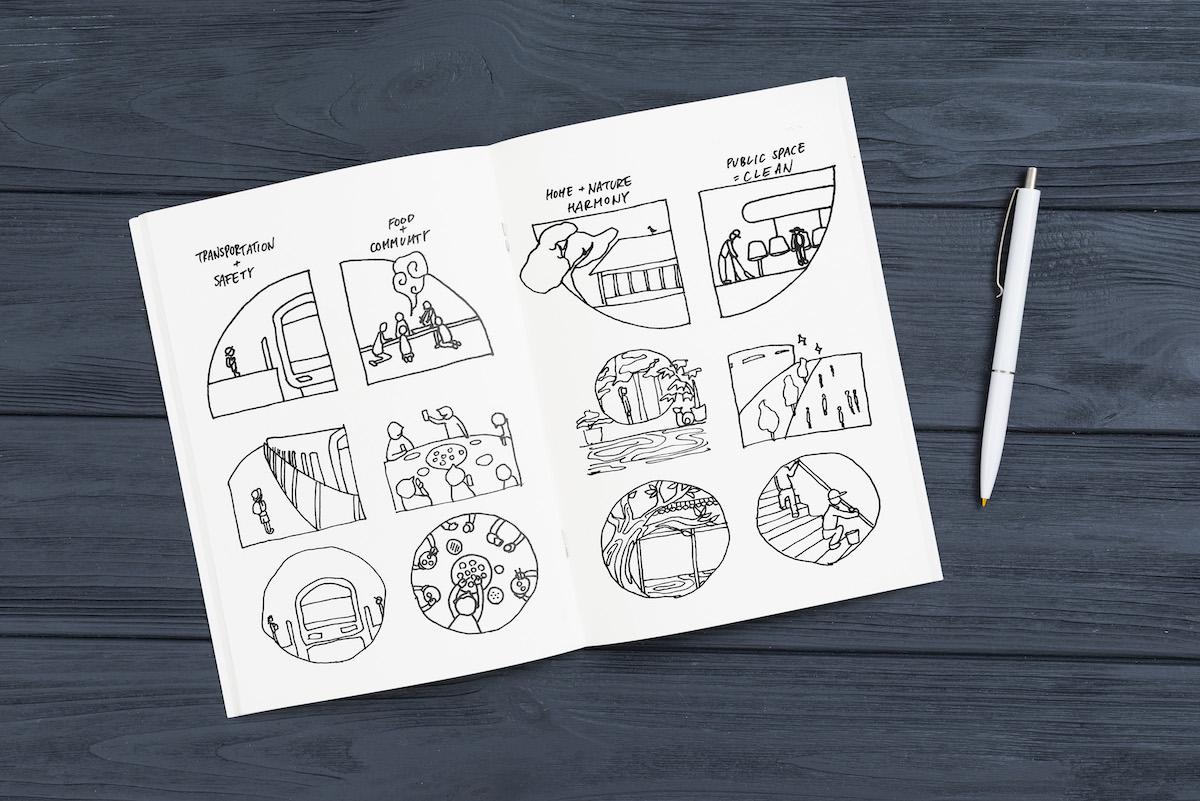 TRANSPORTATION
+
SAFETY
FOOD
+
COMMUNITY
HOME + NATURE
HARMONY
PUBLIC SPACE
= CLEAN